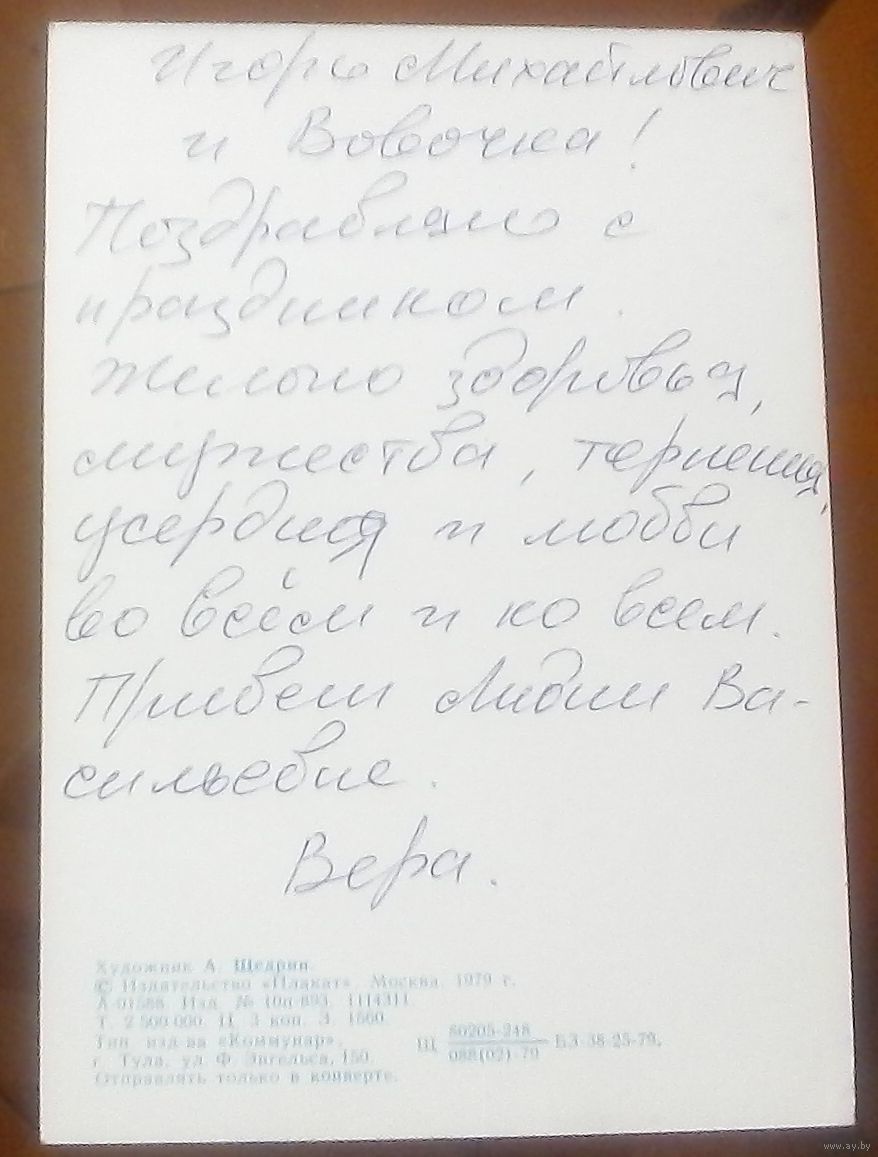 Игорь Михайлович
и Вовочка!
Поздравляю с
праздником.
Желаю здоровья,
мужества, терпения,
усердия и любви
во всём и ко всем.
Привет Лидии Ва-
сильевне.
Вера.
Художник А. Щедрин.
© Издательство «Плакат». Москва. 1979 г.
А-01588. Изд. № 10п-893. 1114311.
Т. 2 500 000. Ц. 3 коп. З. 1560.
Тип. изд-ва «Коммунар»,
г. Тула, ул. Ф. Энгельса, 150.
Отправлять только в конверте.
Щ 80205-248 / 088(02)-79 БЗ-38-25-79.
www.ay.by